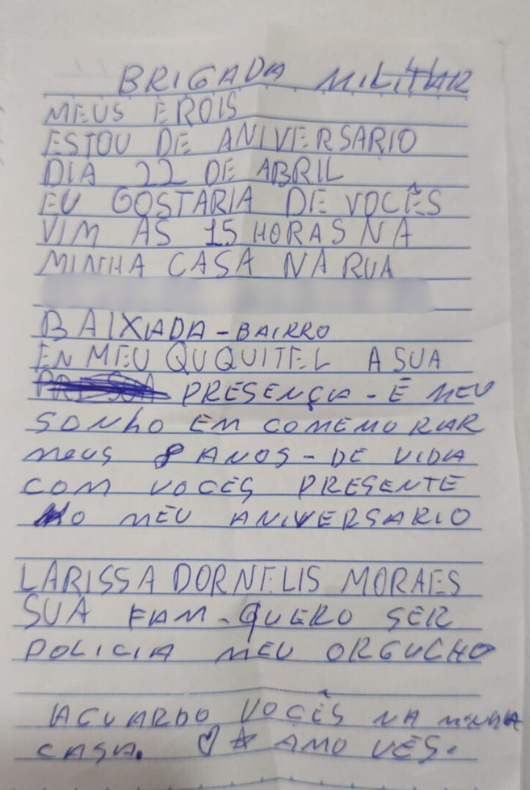 BRIGADA MILITAR
MEUS EROIS
ESTOU DE ANIVERSARIO
DIA 22 DE ABRIL
EU GOSTARIA DE VOCÊS
VIM AS 15 HORAS NA
MINHA CASA NA RUA
BAIXADA-BAIRRO
EN MEU QUQUITEL A SUA
PRESENÇA - É MEU
SONHO EM COMEMORAR
MEUS 8 ANOS - DE VIDA
COM VOCES PRESENTE
NO MEU ANIVERSARIO
LARISSA DORNELIS MORAES
SUA FAM - QUERO SER
POLICIA MEU ORGUCHO
AGUARDO VOCÊS NA MINHA
CASA. ♡ ☆ AMO VÊS.